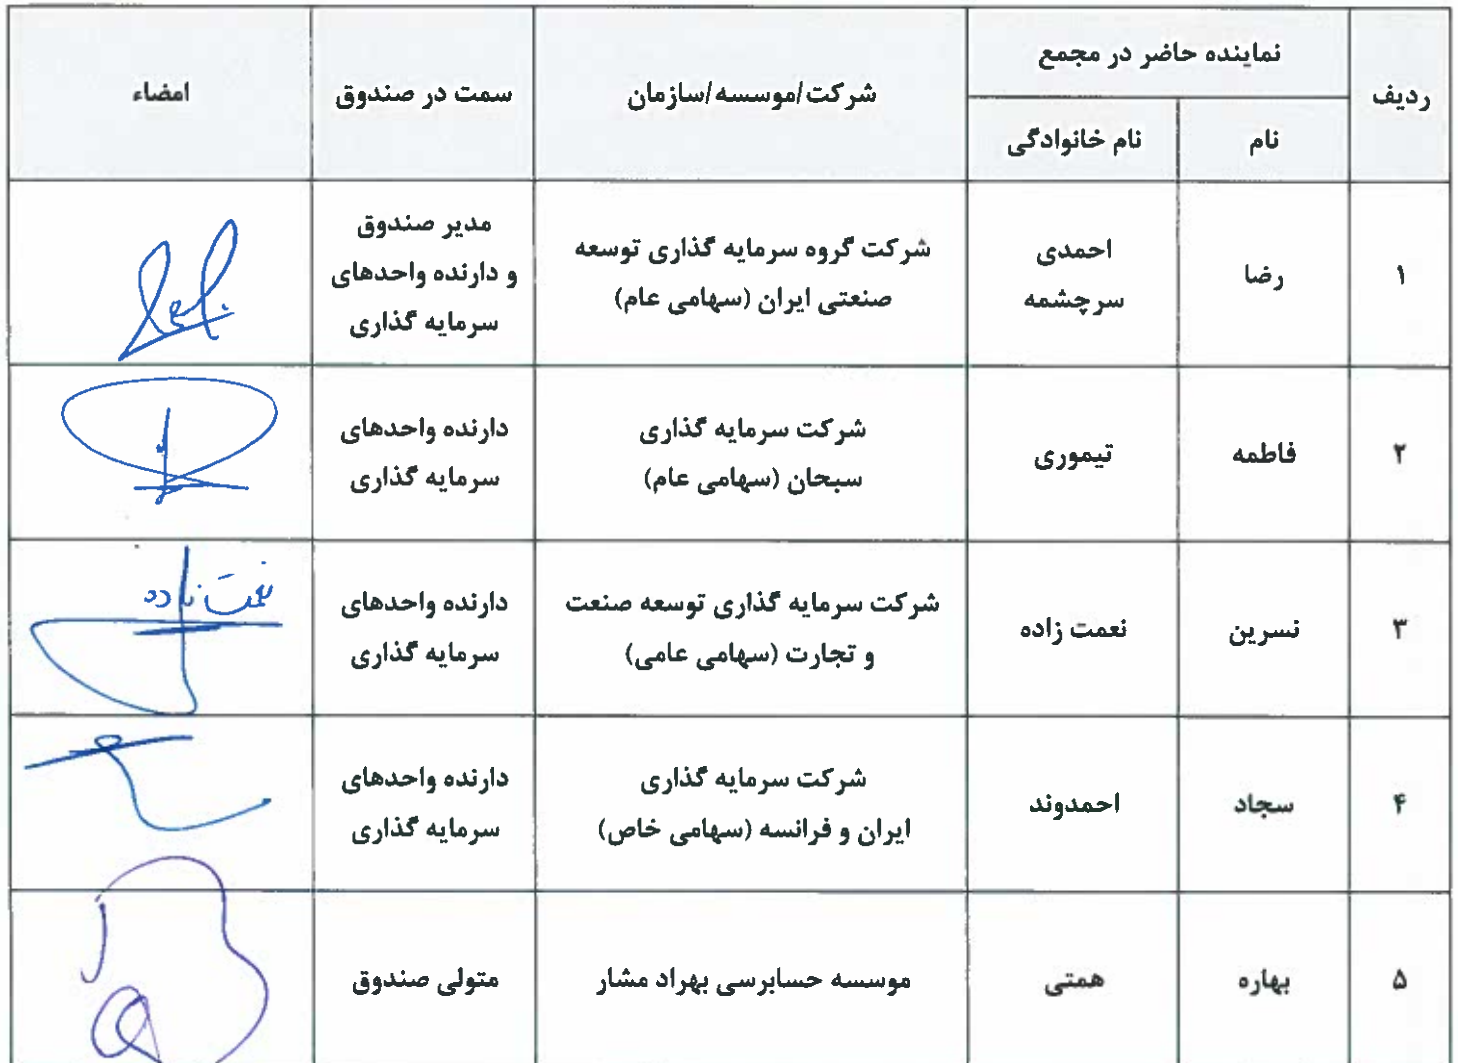 ردیف
نماینده حاضر در مجمع
نام
نام خانوادگی
شرکت/موسسه/سازمان
سمت در صندوق
امضاء
۱
رضا
احمدی
سرچشمه
شرکت گروه سرمایه گذاری توسعه
صنعتی ایران (سهامی عام)
مدیر صندوق
و دارنده واحدهای
سرمایه گذاری
۲
فاطمه
تیموری
شرکت سرمایه گذاری
سبحان (سهامی عام)
دارنده واحدهای
سرمایه گذاری
۳
نسرین
نعمت زاده
شرکت سرمایه گذاری توسعه صنعت
و تجارت (سهامی عامی)
دارنده واحدهای
سرمایه گذاری
نعمت زاده
۴
سجاد
احمدوند
شرکت سرمایه گذاری
ایران و فرانسه (سهامی خاص)
دارنده واحدهای
سرمایه گذاری
۵
بهاره
همتی
موسسه حسابرسی بهراد مشار
متولی صندوق